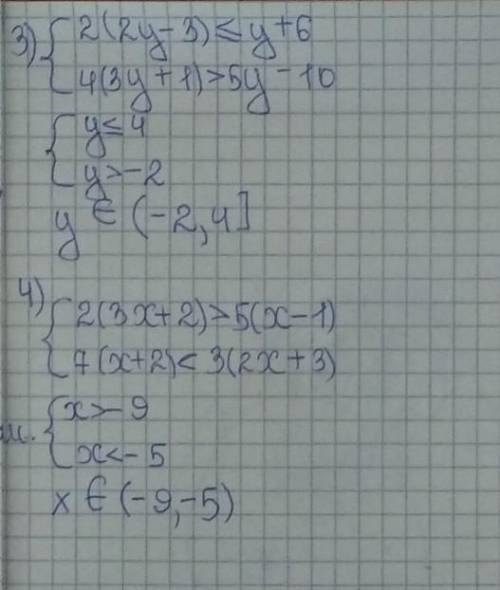 3) { 2(2y-3) ≤ y+6
4(3y+1)>5y-10
{ y≤4
y>-2
y ∈ (-2,4]
4) { 2(3x+2)>5(x-1)
7(x+2)< 3(2x+3)
{ x>-9
x<-5
x ∈ (-9,-5)